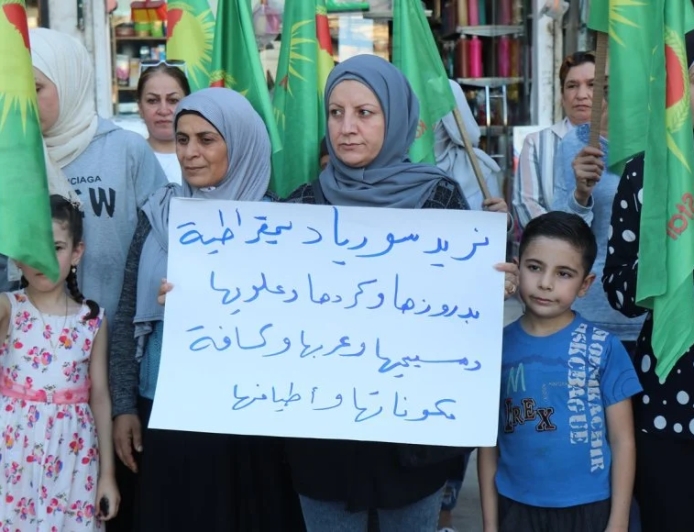 نريد سوريا ديمقراطية
بدروزها وكردها وعلويها
ومسيحيها وعربها وكافة
مكوناتها وأطيافها
CIAGA
EW
T-REX